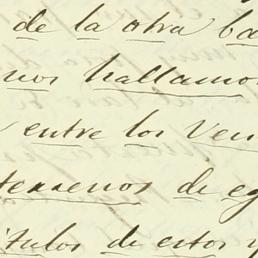 de la otra ba
nos hallamos
entre los Ven
terrenos de eg
itulos de estos y